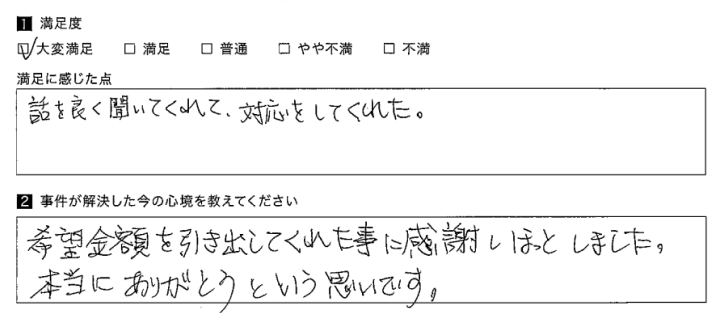 1 満足度
☑大変満足 □ 満足 □ 普通 □ やや不満 □ 不満
満足に感じた点
話を良く聞いてくれて、対応をしてくれた。
2 事件が解決した今の心境を教えてください
希望金額を引き出してくれた事に感謝しほっとしました。
本当にありがとうという思いです。